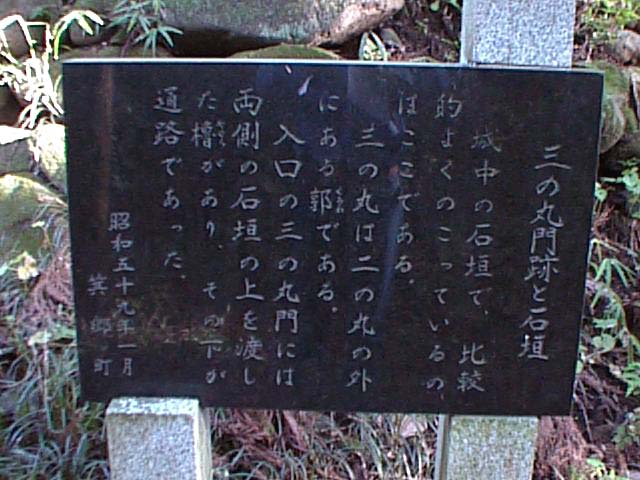 三の丸門跡と石垣
城中の石垣で、比較
的よくのこっているの
はここである。
三の丸は二の丸の外
にある郭である。
入口の三の丸門には
両側の石垣の上を渡し
た櫓があり、その下が
通路であった。
昭和五十九年一月
箕郷町